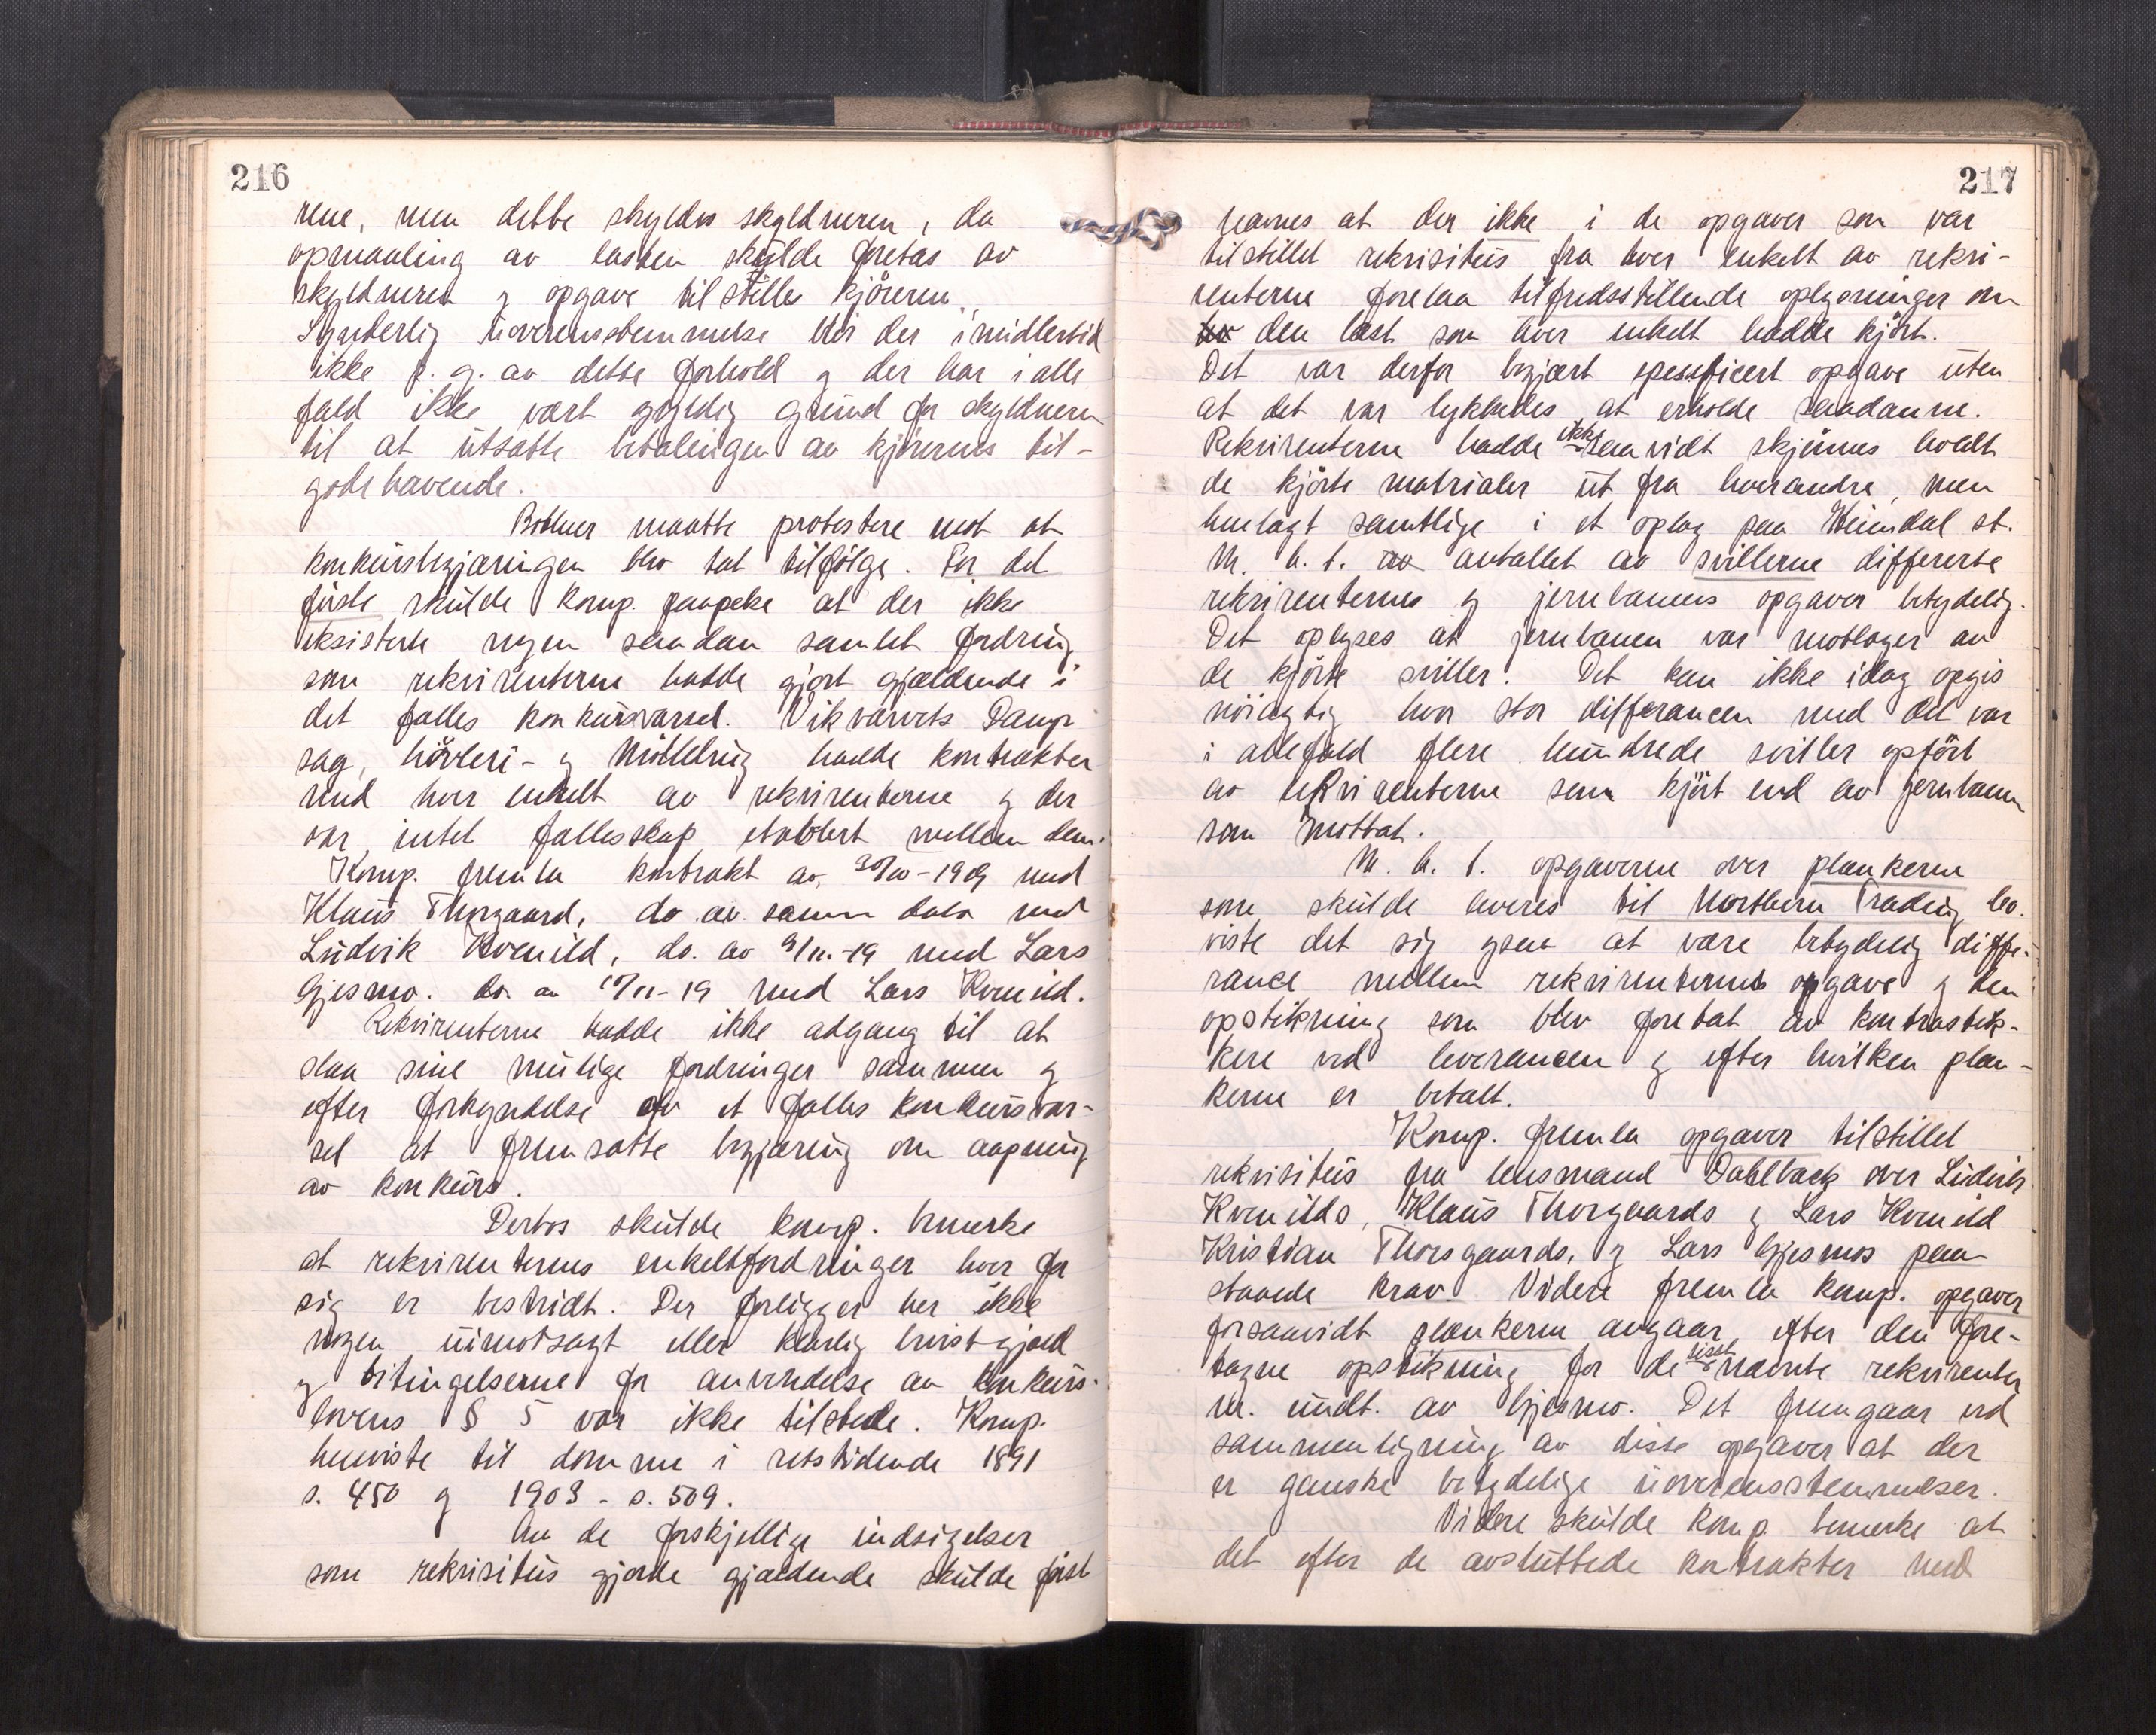 216
rene, men dette skyldes skyldneren, da
opmaaling av lasten skulde foretas av
skyldneren og opgave tilstilles kjöreren.
Synderlig uoverensstemmelse blir der imidlertid
ikke p. g. av dette forhold og der har i alle
fald ikke vært gyldig grund for skyldneren
til at utsætte betalingen av kjörernes til-
godehavende.
maatte protestere mot at
konkursbegjæringen blev tat tilfölge. For det
förste skulde komp. paapeke at der ikke
eksisterte nogen saadan samlet fordring
som rekvirenterne hadde gjort gjældende i
det fælles konkursvarsel. Vikværvets Damp
sag, hövleri- og Mölledrug hadde kontrakter
med hver enkelt av rekvirenterne og der
var intet fællesskap etablert mellem dem.
Komp. fremla kontrakt av 30/10-1909 med
Klaus Thorgaard, do. av. samme dato med
Ludvik Kvenild, do. av 9/11.-19 med Lars
Gjesmo. do. av 10/11-19 med Lars Kvenild.
Rekvirenterne hadde ikke adgang til at
slaa sine mulige fordringer sammen og
efter forkyndelse av et fælles konkursvar-
sel at fremsætte begjæring om aapning
av konkurs.
Dertos skulde komp. bemerke
at rekvirenternes enkeltfordringer hver for
sig er bestridt. Der foreligger her ikke
nogen uimotsagt eller klarlig bevist gjæld
og betingelserne for anvendelse av konkurs-
lovens § 5 var ikke tilstede. Komp.
henviste til domme i retstidende 1891
s. 450 og 1903 - s. 509.
Av de forskjellige indsigelser
som rekvisitus gjorde gjældende skulde först
217
nævnes at der ikke i de opgaver som var
tilstillet rekvisitus fra hver enkelt av rekvi-
renterne forelaa tilfredsstillende oplysninger om
den last som hver enkelt hadde kjört.
Det var derfor begjært spesificert opgave uten
at det var lykkedes at erholde saadanne.
Rekvirenterne hadde ikke saavidt skjönnes holdt
de kjörte matrialer ut fra hverandre, men
henlagt samtlige i et oplag paa Heimdal st.
M. h. t. av antallet av svillerne differerte
rekvirenternes og jernbanens opgaver betydelig.
Det oplyses at jernbanen var mottager av
de kjörte sviller. Det kan ikke idag opgis
nöiagtig hvor stor differancen med det var
i allefald flere hundrede sviller opfört
av rekvirenterne som kjört end av jernbanen
som mottat.
M. h. t. opgaverne over plankerne
som skulde leveres til Northern Trading Co.
viste det sig ogsaa at være betydelig diffe-
rance mellem rekvirenternes opgave og den
opstikning som blev foretat av kontrastik-
kere ved leverancen og efter hvilken plan-
kerne er betalt.
Komp. fremla opgaver tilstillet
rekvisitus fra lensmand Dahlback over Ludvik
Kvenilds, Klaus Thorgaards og Lars Kvenild
Kristian Thorsgaards, og Lars Gjesmos paa-
staaede krav. Videre fremla komp. opgaver
forsaavidt plankerne angaar, efter den fore-
tagne opstikning for de sisst nævnte rekvirenter
m. undt. av Gjesmo. Det fremgaar ved
sammenligning av disse opgaver at der
er ganske betydelige uoverensstemmelser.
Videre skulde komp. bemerke at
det efter de avsluttede kontrakter med